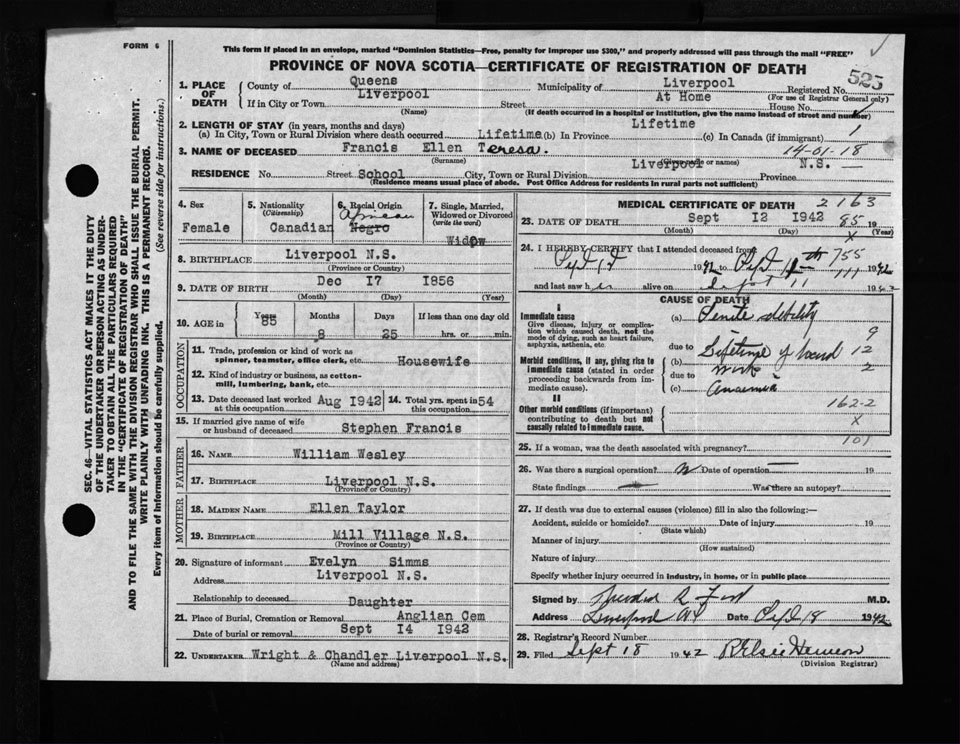 FORM 6
This form if placed in an envelope, marked "Dominion Statistics—Free, penalty for improper use $300," and properly addressed will pass through the mail "FREE"
PROVINCE OF NOVA SCOTIA—CERTIFICATE OF REGISTRATION OF DEATH
525
1. PLACE OF DEATH County of Queens Municipality of Liverpool Registered No.
(For use of Registrar General only)
If in City or Town Liverpool Street At Home House No.
(Name) (If death occurred in a hospital or institution, give the name instead of street and number)
2. LENGTH OF STAY (in years, months and days)
(a) In City, Town or Rural Division where death occurred Lifetime (b) In Province Lifetime (c) In Canada (if immigrant) 1
3. NAME OF DECEASED Francis Ellen Teresa. 14-01-18
(Surname) (Given name or names)
RESIDENCE No. Street School City, Town or Rural Division Liverpool Province N.S.
(Residence means usual place of abode. Post Office Address for residents in rural parts not sufficient)
4. Sex Female
5. Nationality (Citizenship) Canadian
6. Racial Origin African Negro
7. Single, Married, Widowed or Divorced (write the word) Widow
8. BIRTHPLACE Liverpool N.S.
(Province or Country)
9. DATE OF BIRTH Dec 17 1856
(Month) (Day) (Year)
10. AGE in Years 85 Months 8 Days 25 If less than one day old hrs. or min.
OCCUPATION
11. Trade, profession or kind of work as spinner, teamster, office clerk, etc. Housewife
12. Kind of industry or business, as cotton-mill, lumbering, bank, etc.
13. Date deceased last worked at this occupation Aug 1942
14. Total yrs. spent in this occupation 54
15. If married give name of wife or husband of deceased Stephen Francis
FATHER
16. NAME William Wesley
17. BIRTHPLACE Liverpool N.S.
(Province or Country)
MOTHER
18. MAIDEN NAME Ellen Taylor
19. BIRTHPLACE Mill Village N.S.
(Province or Country)
20. Signature of informant Evelyn Simms
Address Liverpool N.S.
Relationship to deceased Daughter
21. Place of Burial, Cremation or Removal Anglian Cem
Date of burial or removal Sept 14 1942
22. UNDERTAKER Wright & Chandler Liverpool N.S.
(Name and address)
MEDICAL CERTIFICATE OF DEATH 2163
23. DATE OF DEATH Sept 12 1942 85 19
(Month) (Day) X (Year)
24. I HEREBY CERTIFY that I attended deceased from 755
1942 Sept 1942 111
and last saw her alive on Sept 11 1942
CAUSE OF DEATH
I
Immediate cause
Give disease, injury or complication which caused death, not the mode of dying, such as heart failure, asphyxia, asthenia, etc.
(a) Senile debility
9
due to Lifetime of hard 12
Morbid conditions, if any, giving rise to immediate cause (stated in order proceeding backwards from immediate cause).
(b) work 2
due to
(c) anaemia
II
Other morbid conditions (if important) contributing to death but not causally related to immediate cause.
162-2
X
101
25. If a woman, was the death associated with pregnancy?
26. Was there a surgical operation? N Date of operation 19
State findings Was there an autopsy?
27. If death was due to external causes (violence) fill in also the following:—
Accident, suicide or homicide? Date of injury 19
(State which)
Manner of injury
(How sustained)
Nature of injury
Specify whether injury occurred in industry, in home, or in public place
Signed by M.D.
Address Liverpool NS Date Sept 18 1942
28. Registrar's Record Number
29. Filed Sept 18 1942
(Division Registrar)
SEC. 46—VITAL STATISTICS ACT MAKES IT THE DUTY
OF THE UNDERTAKER OR PERSON ACTING AS UNDER-
TAKER TO OBTAIN ALL THE PARTICULARS REQUIRED
IN THE "CERTIFICATE OF REGISTRATION OF DEATH"
AND TO FILE THE SAME WITH THE DIVISION REGISTRAR WHO SHALL ISSUE THE BURIAL PERMIT.
WRITE PLAINLY WITH UNFADING INK. THIS IS A PERMANENT RECORD.
Every item of information should be carefully supplied. (See reverse side for instructions.)